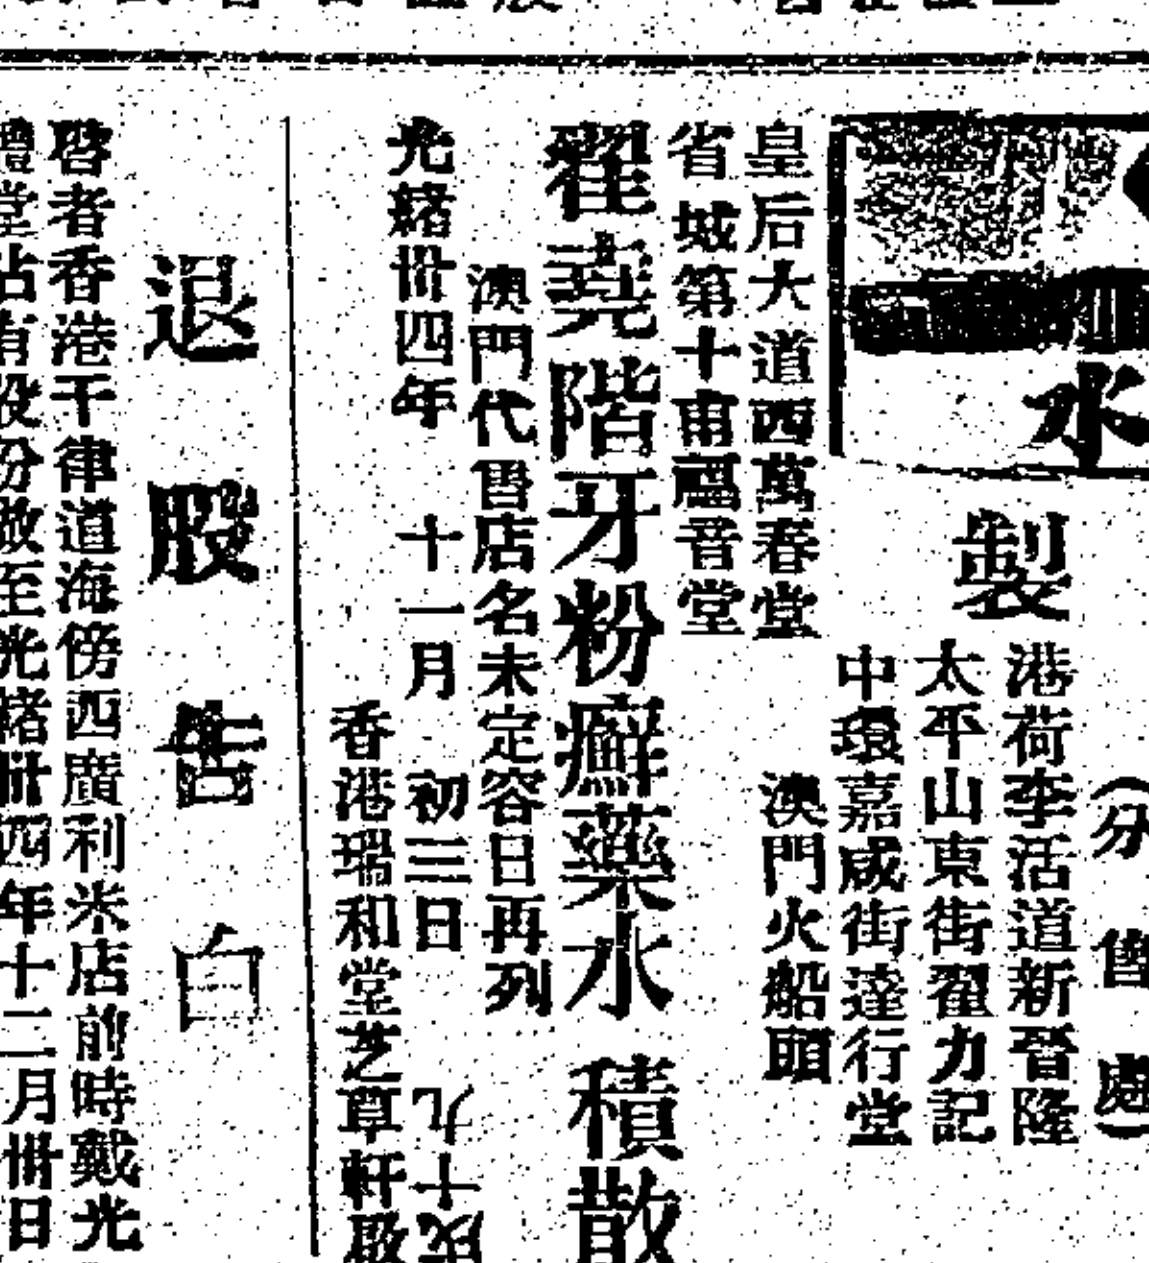 水
製
(分售處)
港荷李活道新晉隆
太平山東街翟力記
中環嘉咸街達行堂
澳門火船頭
皇后大道西萬春堂
省城第十甫福音堂
翟堯階牙粉癬藥水積散
澳門代售店名未定容日再列
光緒卅四年十一月初三日
香港瑞和堂芝草軒啟
退股告白
啓者香港干律道海傍西廣利米店前時戴光
禮堂占有股份做至光緒卅四年十二月卅日